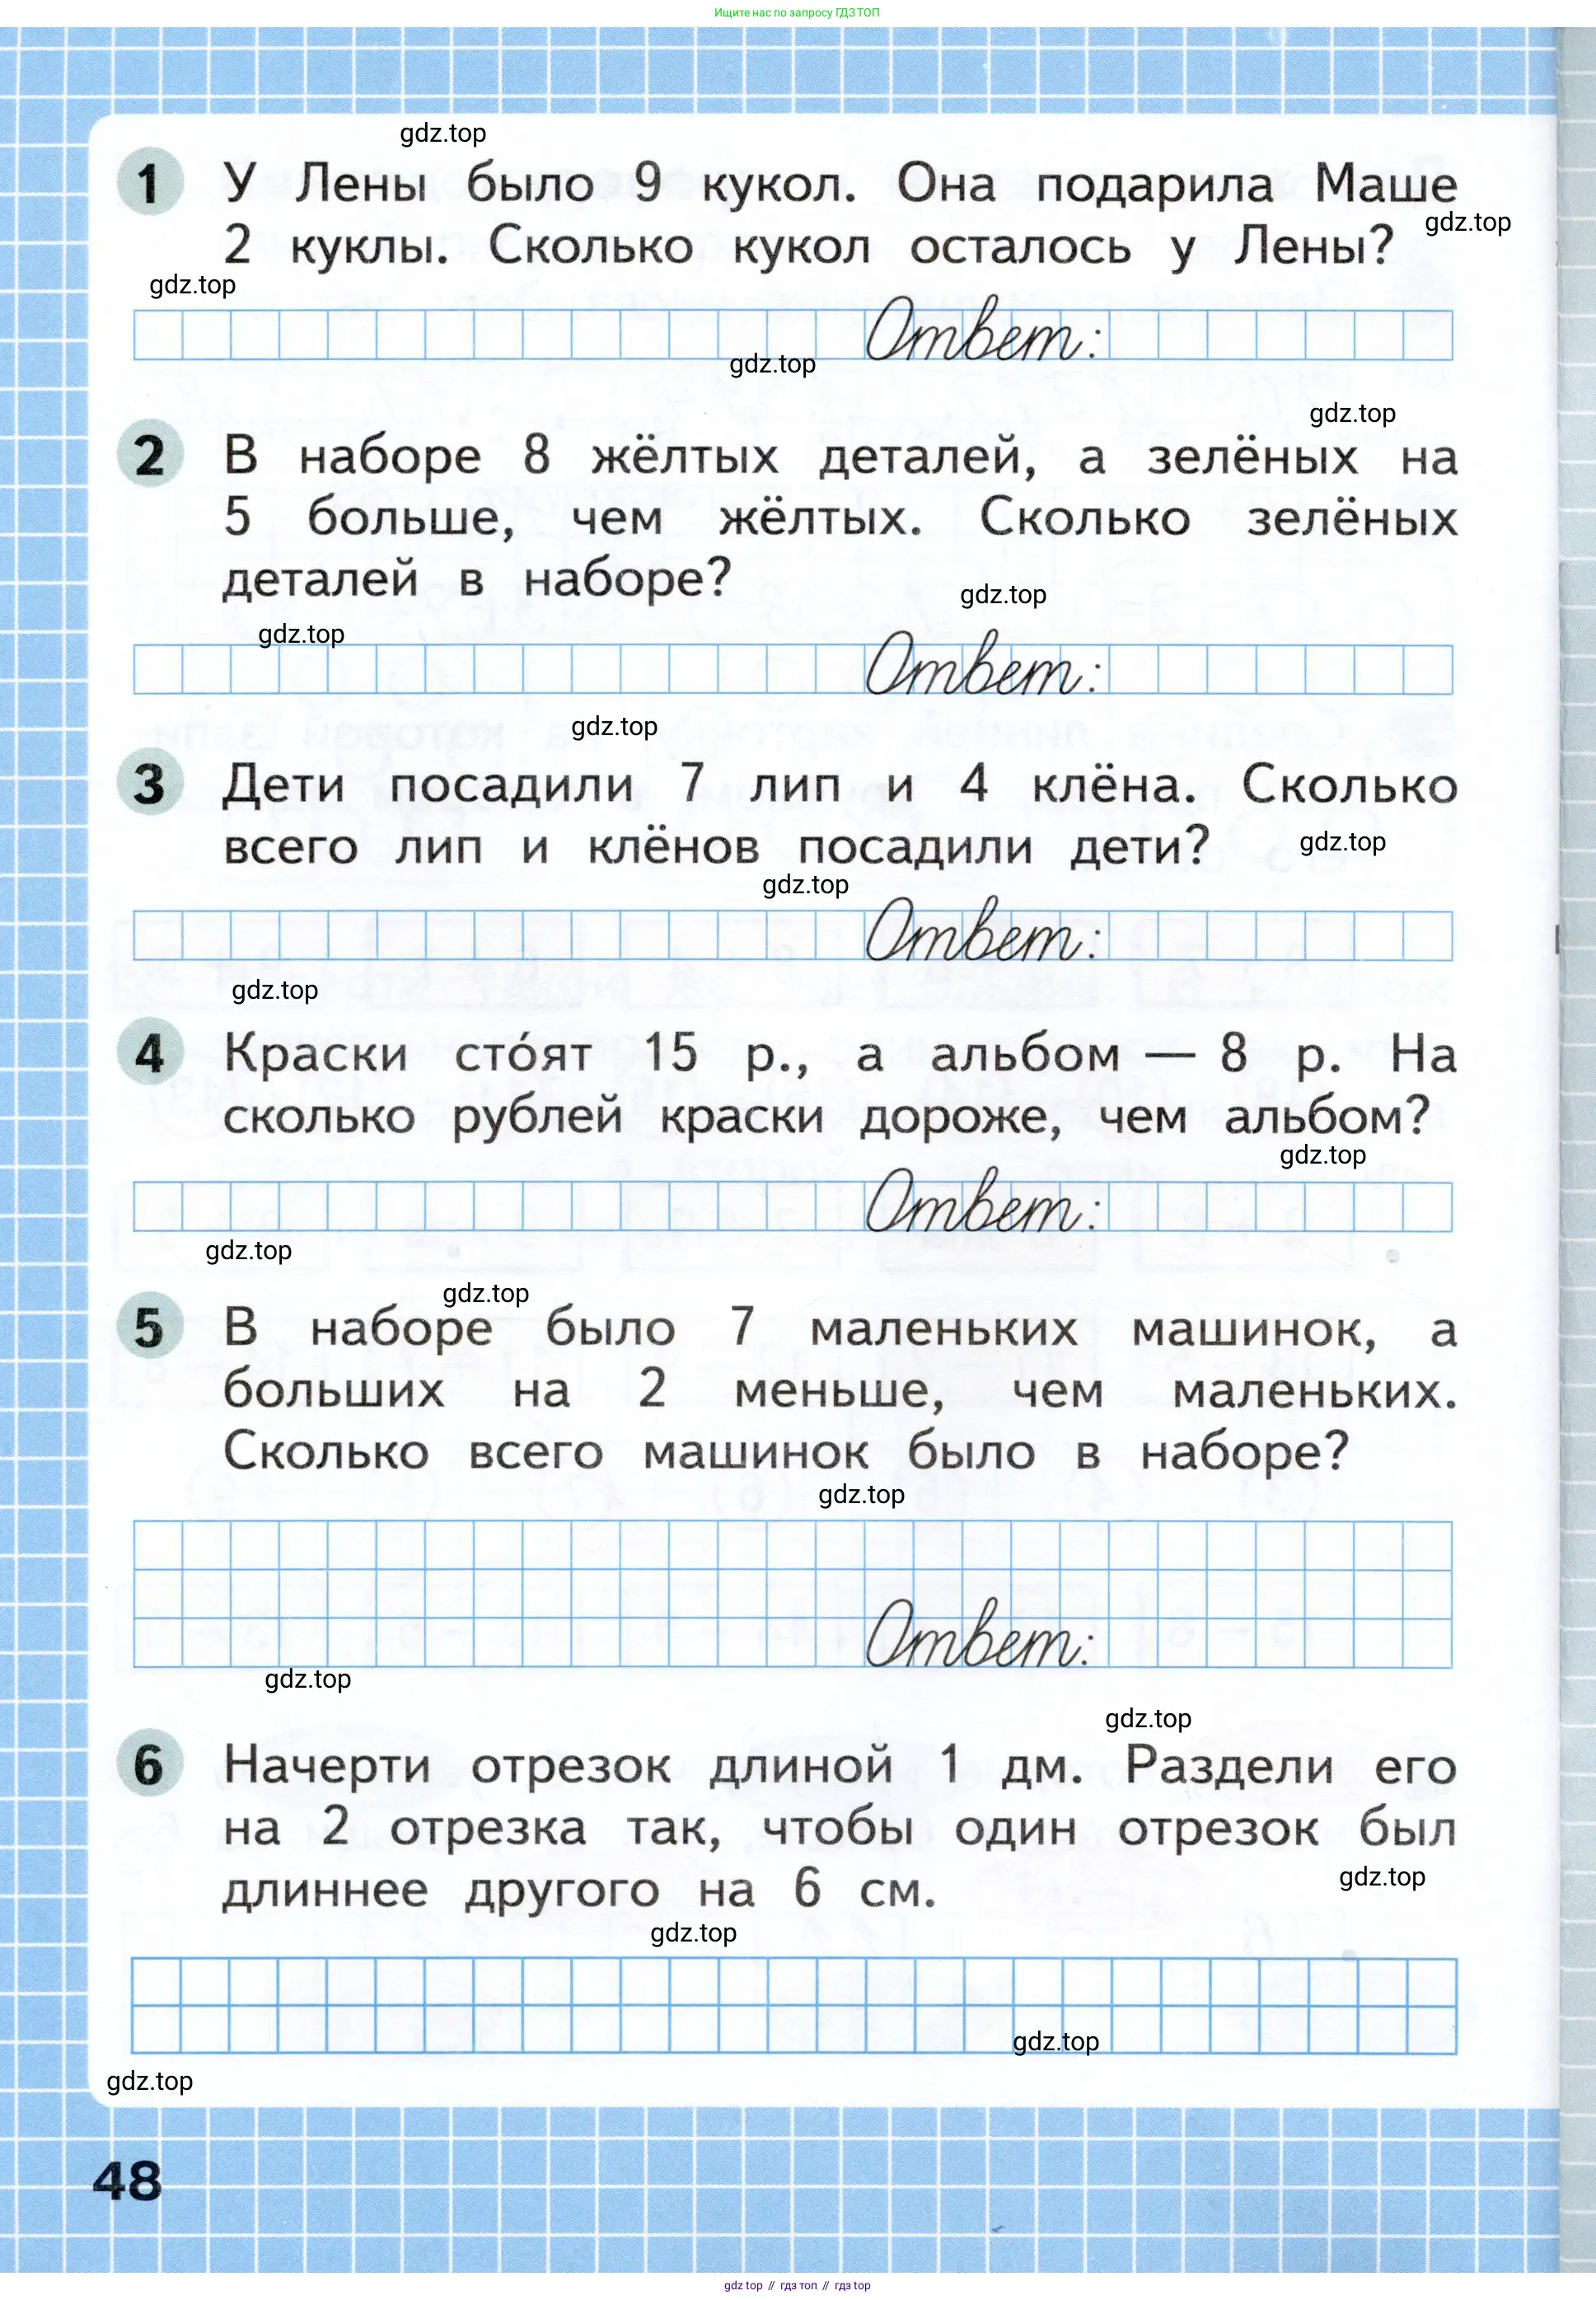 Ищите нас по запросу ГДЗ ТОП
gdz.top
1 У Лены было 9 кукол. Она подарила Маше
gdz.top
2 куклы. Сколько кукол осталось у Лены?
gdz.top
Ответ:
gdz.top
gdz.top
2 В наборе 8 жёлтых деталей, а зелёных на
5 больше, чем жёлтых. Сколько зелёных
деталей в наборе?
gdz.top
gdz.top
Ответ:
gdz.top
3 Дети посадили 7 лип и 4 клёна. Сколько
всего лип и клёнов посадили дети?
gdz.top
gdz.top
Ответ:
gdz.top
4 Краски сто́ят 15 р., а альбом — 8 р. На
сколько рублей краски дороже, чем альбом?
gdz.top
Ответ:
gdz.top
gdz.top
5 В наборе было 7 маленьких машинок, а
больших на 2 меньше, чем маленьких.
Сколько всего машинок было в наборе?
gdz.top
Ответ:
gdz.top
gdz.top
6 Начерти отрезок длиной 1 дм. Раздели его
на 2 отрезка так, чтобы один отрезок был
длиннее другого на 6 см.
gdz.top
gdz.top
gdz.top
gdz.top
48
gdz top // гдз топ // гдз top